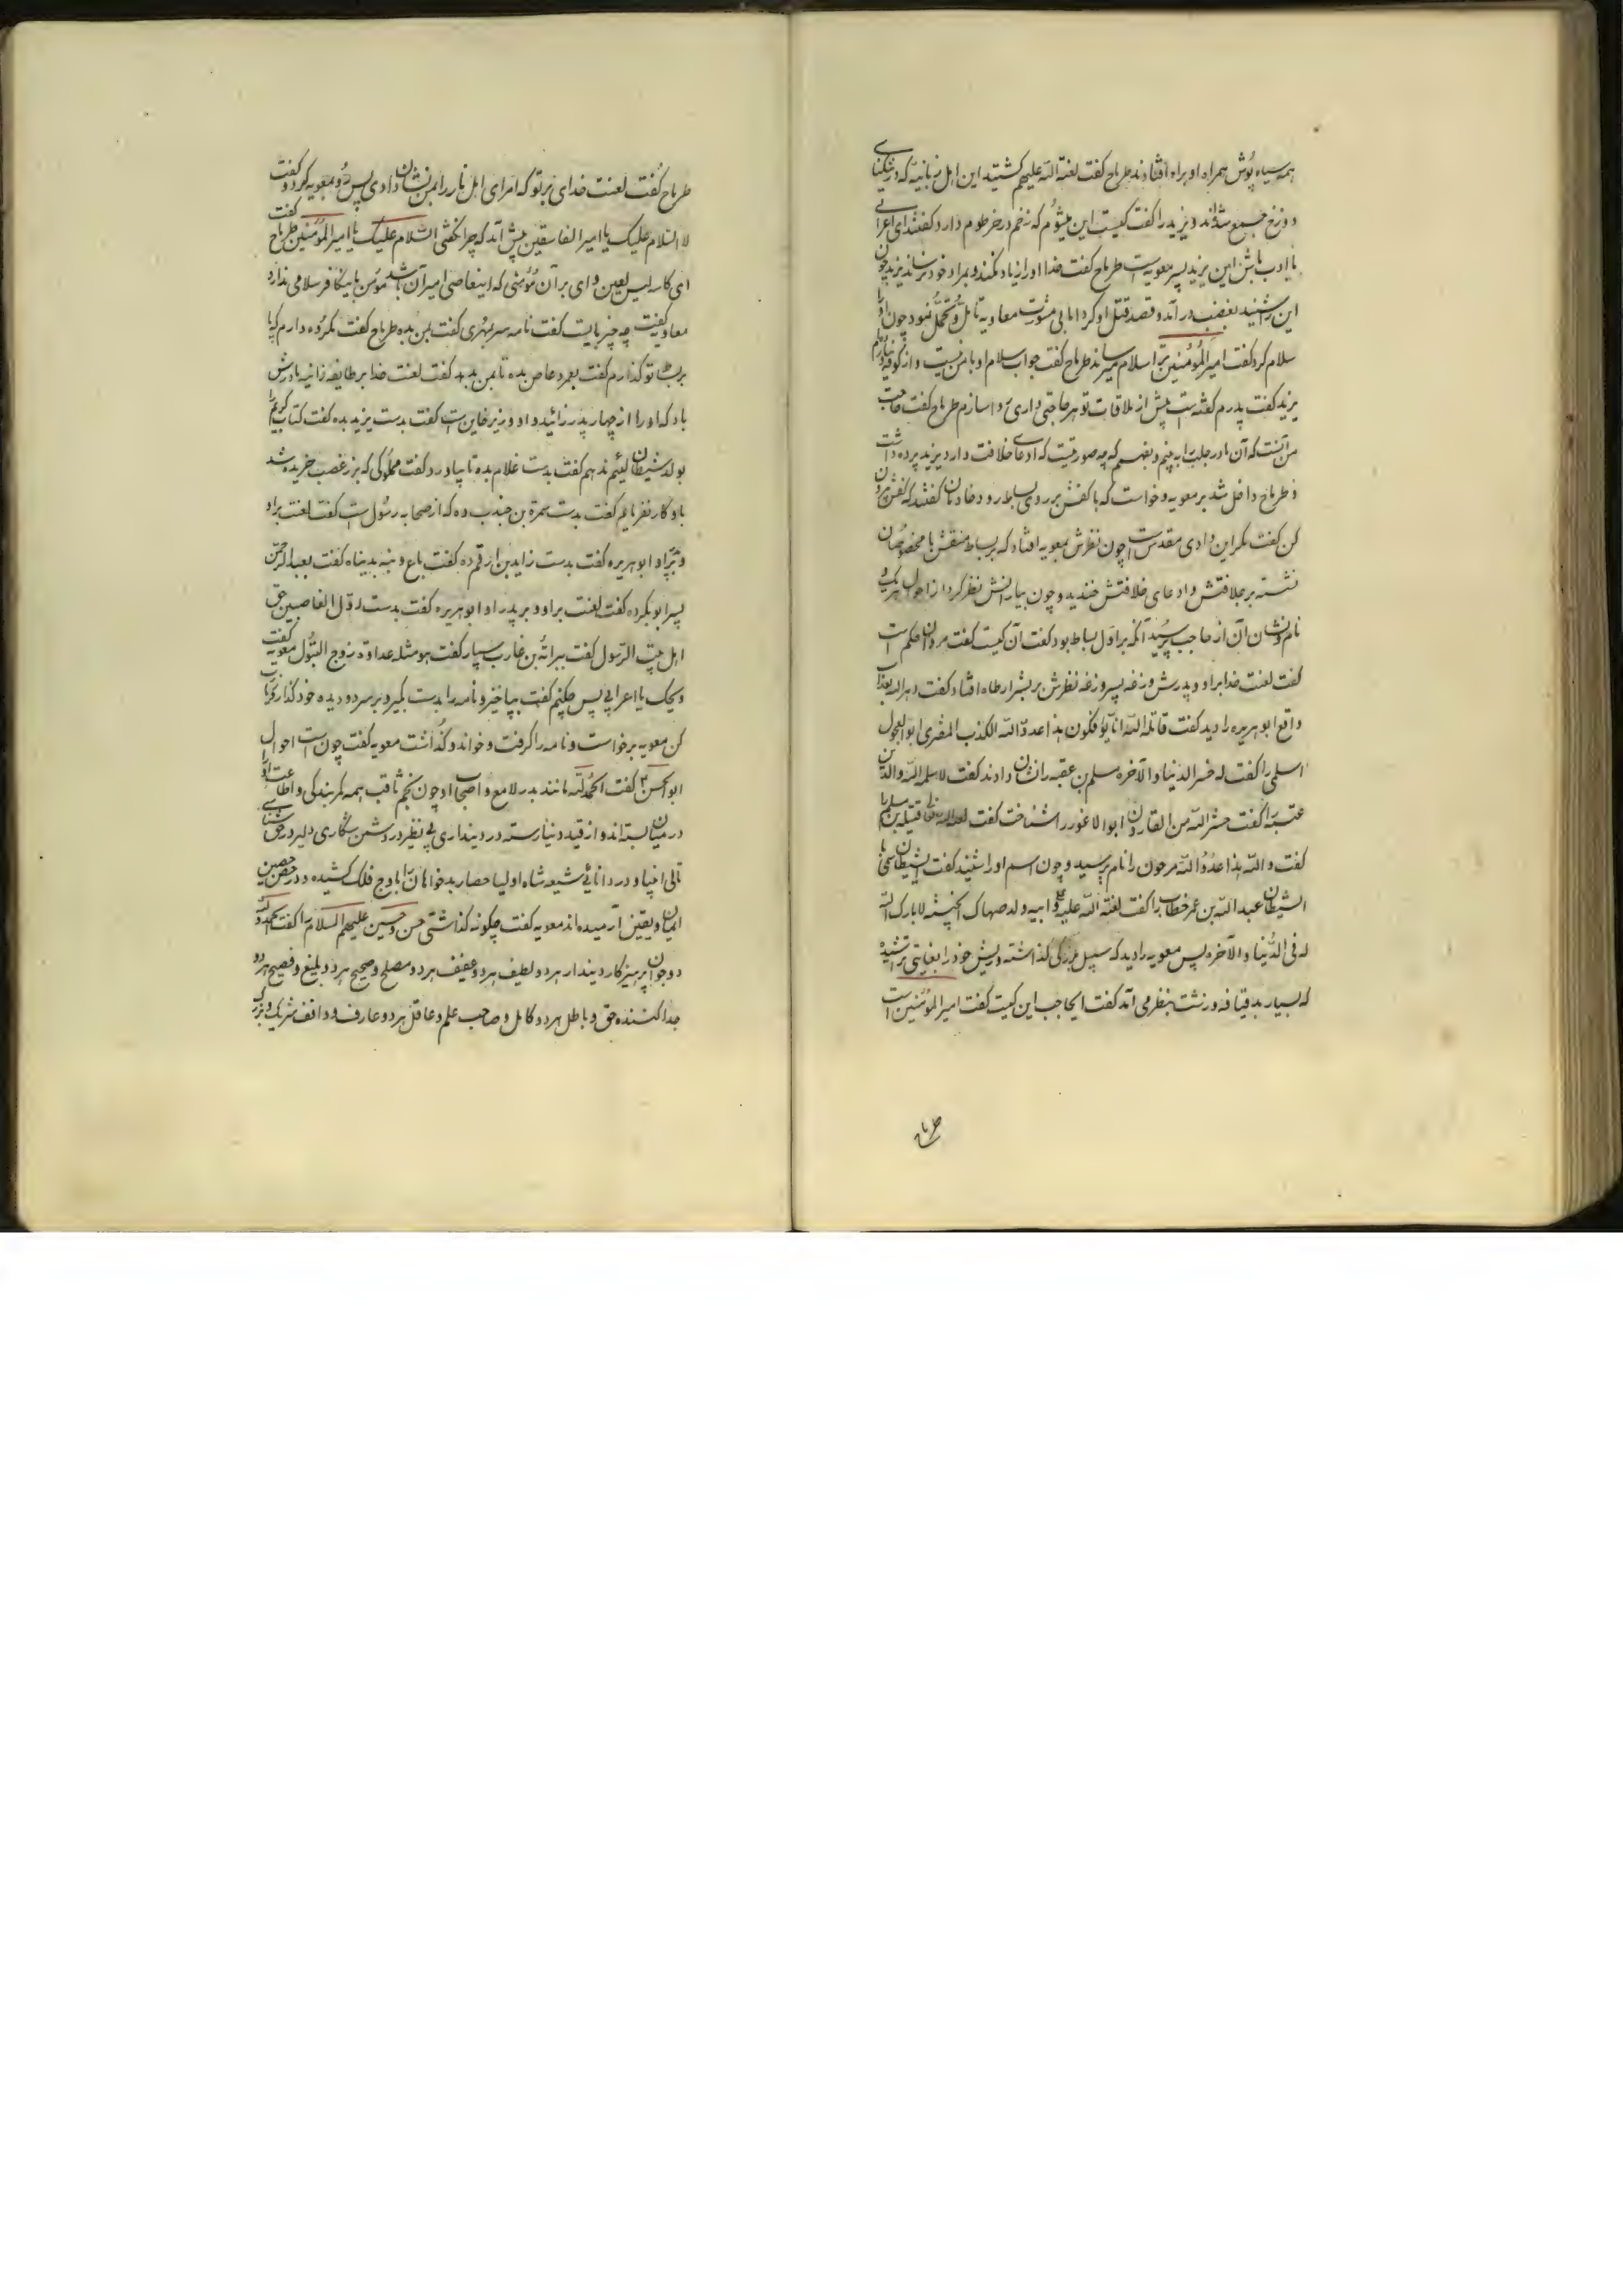 همه سیاه پوش همراه او براه افتادند طرماح گفت لعنة الله علیهم کشتید این اهل زبانیه که در تنکنای
دوزخ جمع شده‌اند و یزید را گفت کیست این میشوم که زخم در خرطوم دارد گفتند ای اعرابی
با ادب باش این یزید پسر معویه است طرماح گفت خدا او را زیاد نکند و بمراد خود نرساند یزید چون
این را شنید بغضب در آمد و قصد قتل او کرد اما بی مشورت معاویه تامل و تحمل نمود چون او را
سلام کرد گفت امیر المؤمنین ترا سلام میرساند طرماح گفت جواب سلام او با من نیست و از کوفه نیاورده‌ام
یزید گفت پدرم گفته است پیش از ملاقات تو هر حاجتی داری روا سازم طرماح گفت حاجت
من آنست که آن را ببینم و بفهمم که چه صورتیست که ادعای خلافت دارد یزید پرده برداشت
و طرماح داخل شد بر معویه و خواست که با کفش بر روی بساط رود خادمان گفتند که کفش بیرون
کن گفت مگر این وادی مقدس است چون نظرش بمعویه افتاد که بر بساط منقش با مخصوصان
نشسته بر علافتش و ادعای خلافتش خندید و چون بیارانش نظر کرد از احوال هر یک و
نام و نشان آن از حاجب پرسید آنکه بر اول بساط بود گفت آن کیست گفت مروان حکم است
گفت لعنت خدا بر او و پدرش وزغه پسر وزغه نظرش بر بشر ارطاه افتاد گفت بشر الله بعذاب
واقع ابو هریره را دید گفت قاتله الله انا یؤفکون هذا عدو الله الکذب المفتری ابو الهول
اسلمی را گفت له خسر الدنیا و الآخره مسلم بن عقبه را نشان دادند گفت لا سلمه الله و الدین
عتبه را گفت حشر الله من القارون ابو الاغور را شناخت گفت لعنه الله قتیبه بن مسلم را
گفت و الله هذا عدو الله مرحون را نام پرسید و چون اسم او را شنید گفت الشیطان
الشیطان عبد الله بن عمر خطاب را گفت لعنة الله علیه و علی ابیه ولد صهاک الخبیثه لا بارک الله
له فی الدنیا و الآخره پس معویه را دید که سبیل بزرگی گذاشته و ریش خود را بغایتی تراشیده
که بسیار بد قیافه و زشت بنظر می آمد گفت ایحاجب این کیست گفت امیر المؤمنین است
طرماح
طرماح گفت لعنت خدای بر تو که امرای اهل نار را بمن نشان دادی پس رو بمعویه کرد و گفت
لا السلام علیک یا امیر الفاسقین پیش آمد که چرا نگفتی السلام علیک یا امیر المؤمنین طرماح گفت
ای کاسه لیس لعین وای بر آن مؤمنی که اینعاصی امیر آن باشد مؤمن با بیگانه کافر سلامی ندارد
معاویه گفت چه چیز بایت گفت نامه سر بمهری گفت بمن بده طرماح گفت مکروه دارم که پا
بر بساط تو گذارم گفت بعمرو عاص بده تا بمن بدهد گفت لعنت خدا بر طایفه زانیه مادرش
باد که او را از چهار پدر زائیده او وزیر خاین است گفت بدست یزید بده گفت کتاب کریم را
بولد شیطان لئیم ندهم گفت بدست غلام بده تا بیاورد گفت مملوکی که بزر غصب خریده شد
باو کار نفرمایم گفت بدست سمرة بن جندب ده که از صحابه رسول است گفت لعنت بر او
و بر او ابو هریره گفت بدست زاید بن ارقم ده گفت باع دینه بدنیاه گفت بعبد الرحمن
پسر ابو بکر ده گفت لعنت بر او و بر پدر او ابو هریره گفت بدست اول الغاصبین حق
اهل بیت الرسول گفت ببرائه بن عازب بسپار گفت هو مثله عداوة زوج البتول معویه گفت
ویحک یا اعرابی پس چکنم گفت بپا خیز و نامه را بدست بگیر و بر سر دو دیده خود گذار
کن معویه برخواست و نامه را گرفت و خواند و گذاشت معویه گفت چون است احوال
ابو الحسن گفت الحمد لله مانند بدر لامع و اصحاب او چون نجم ثاقب همه کمر بندگی و اطاعت او را
در میان بسته‌اند و از قید دنیا رسته در دینداری بی نظیر در دشمن شکاری دلیر در حق شناسی
تالی انبیا و در دانائی شیعه شاه اولیا حصار بدخواهان را باوج فلک کشیده و در حصن حصین
ایمان و یقین آرمیده‌اند معویه گفت چگونه گذاشتی حسن و حسین علیهم السلام را گفت بحمد الله
دو جوان پرهیزگار دیندار هر دو لطیف هر دو عفیف هر دو مصلح و صحیح هر دو بلیغ و فصیح هر دو
جدا کننده حق و باطل هر دو کامل و صاحب علم و عاقل هر دو عارف و واقف شریک و بزرگ